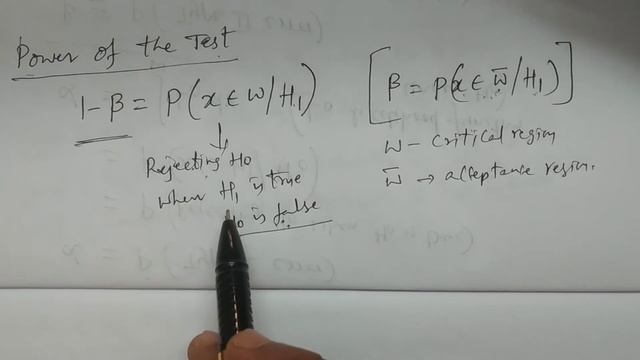 Power of the Test
1-β = P(x ∈ W/H₁)
↓
Rejecting H₀
when H₁ is true
H₀ is false
[β = P(x ∈ W̄/H₁)]
W - critical region
W̄ → acceptance region.